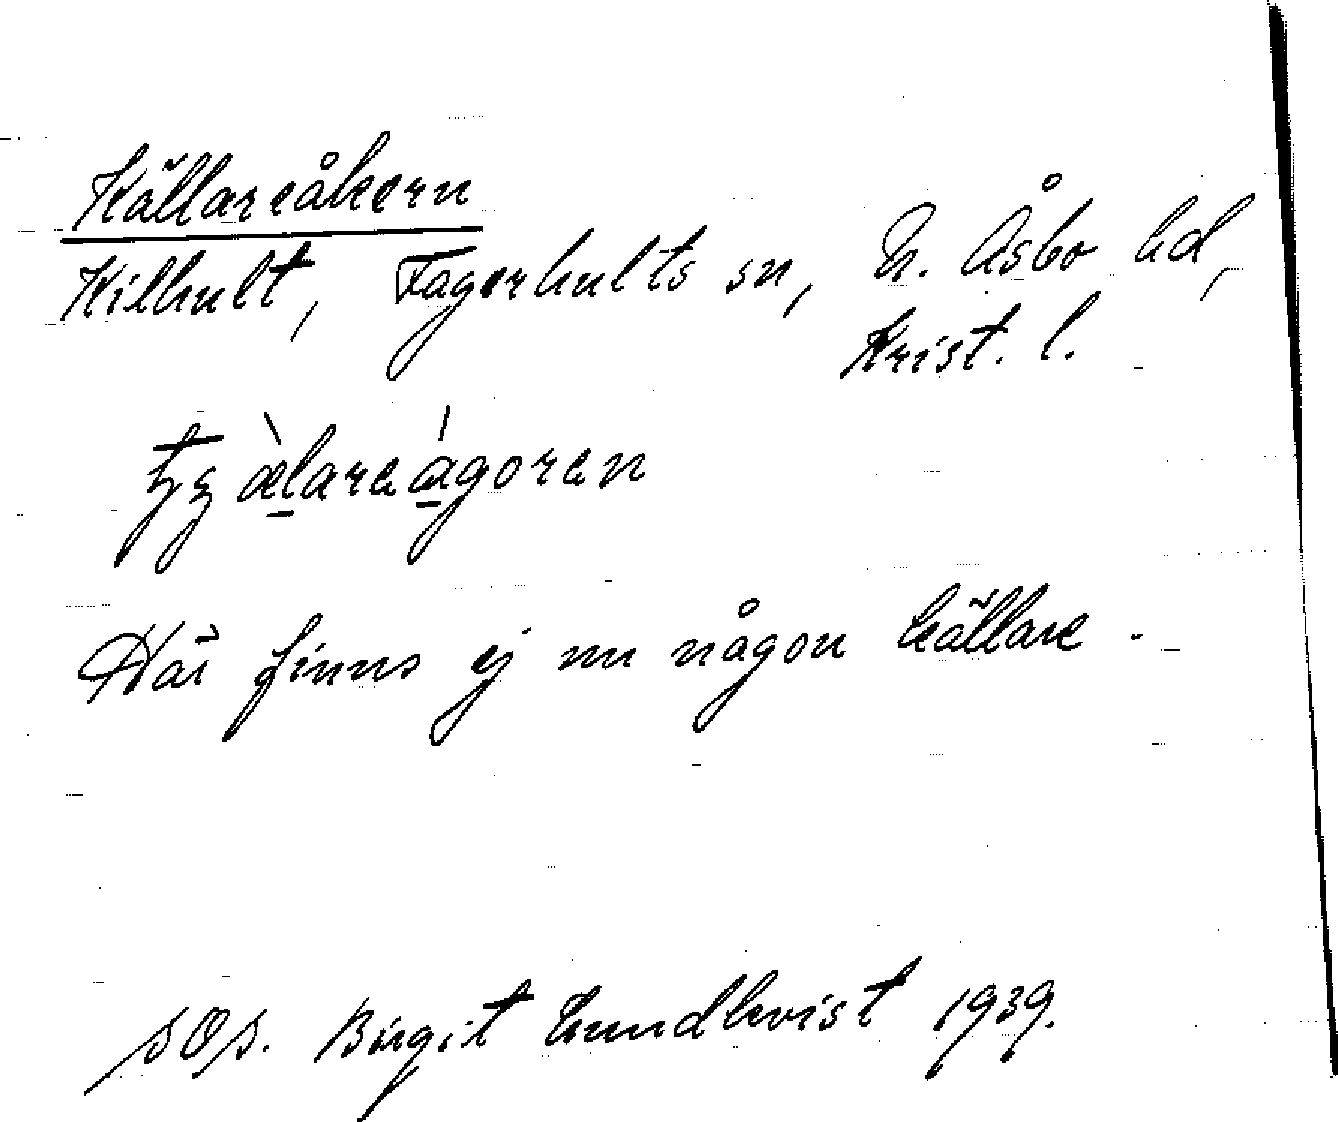 Källareåkern
Kilhult, Fagerhults sn, N. Åsbo hd,
Krist. l.
Här finns ej nu någon källare.
Birgit Lundkvist 1939.